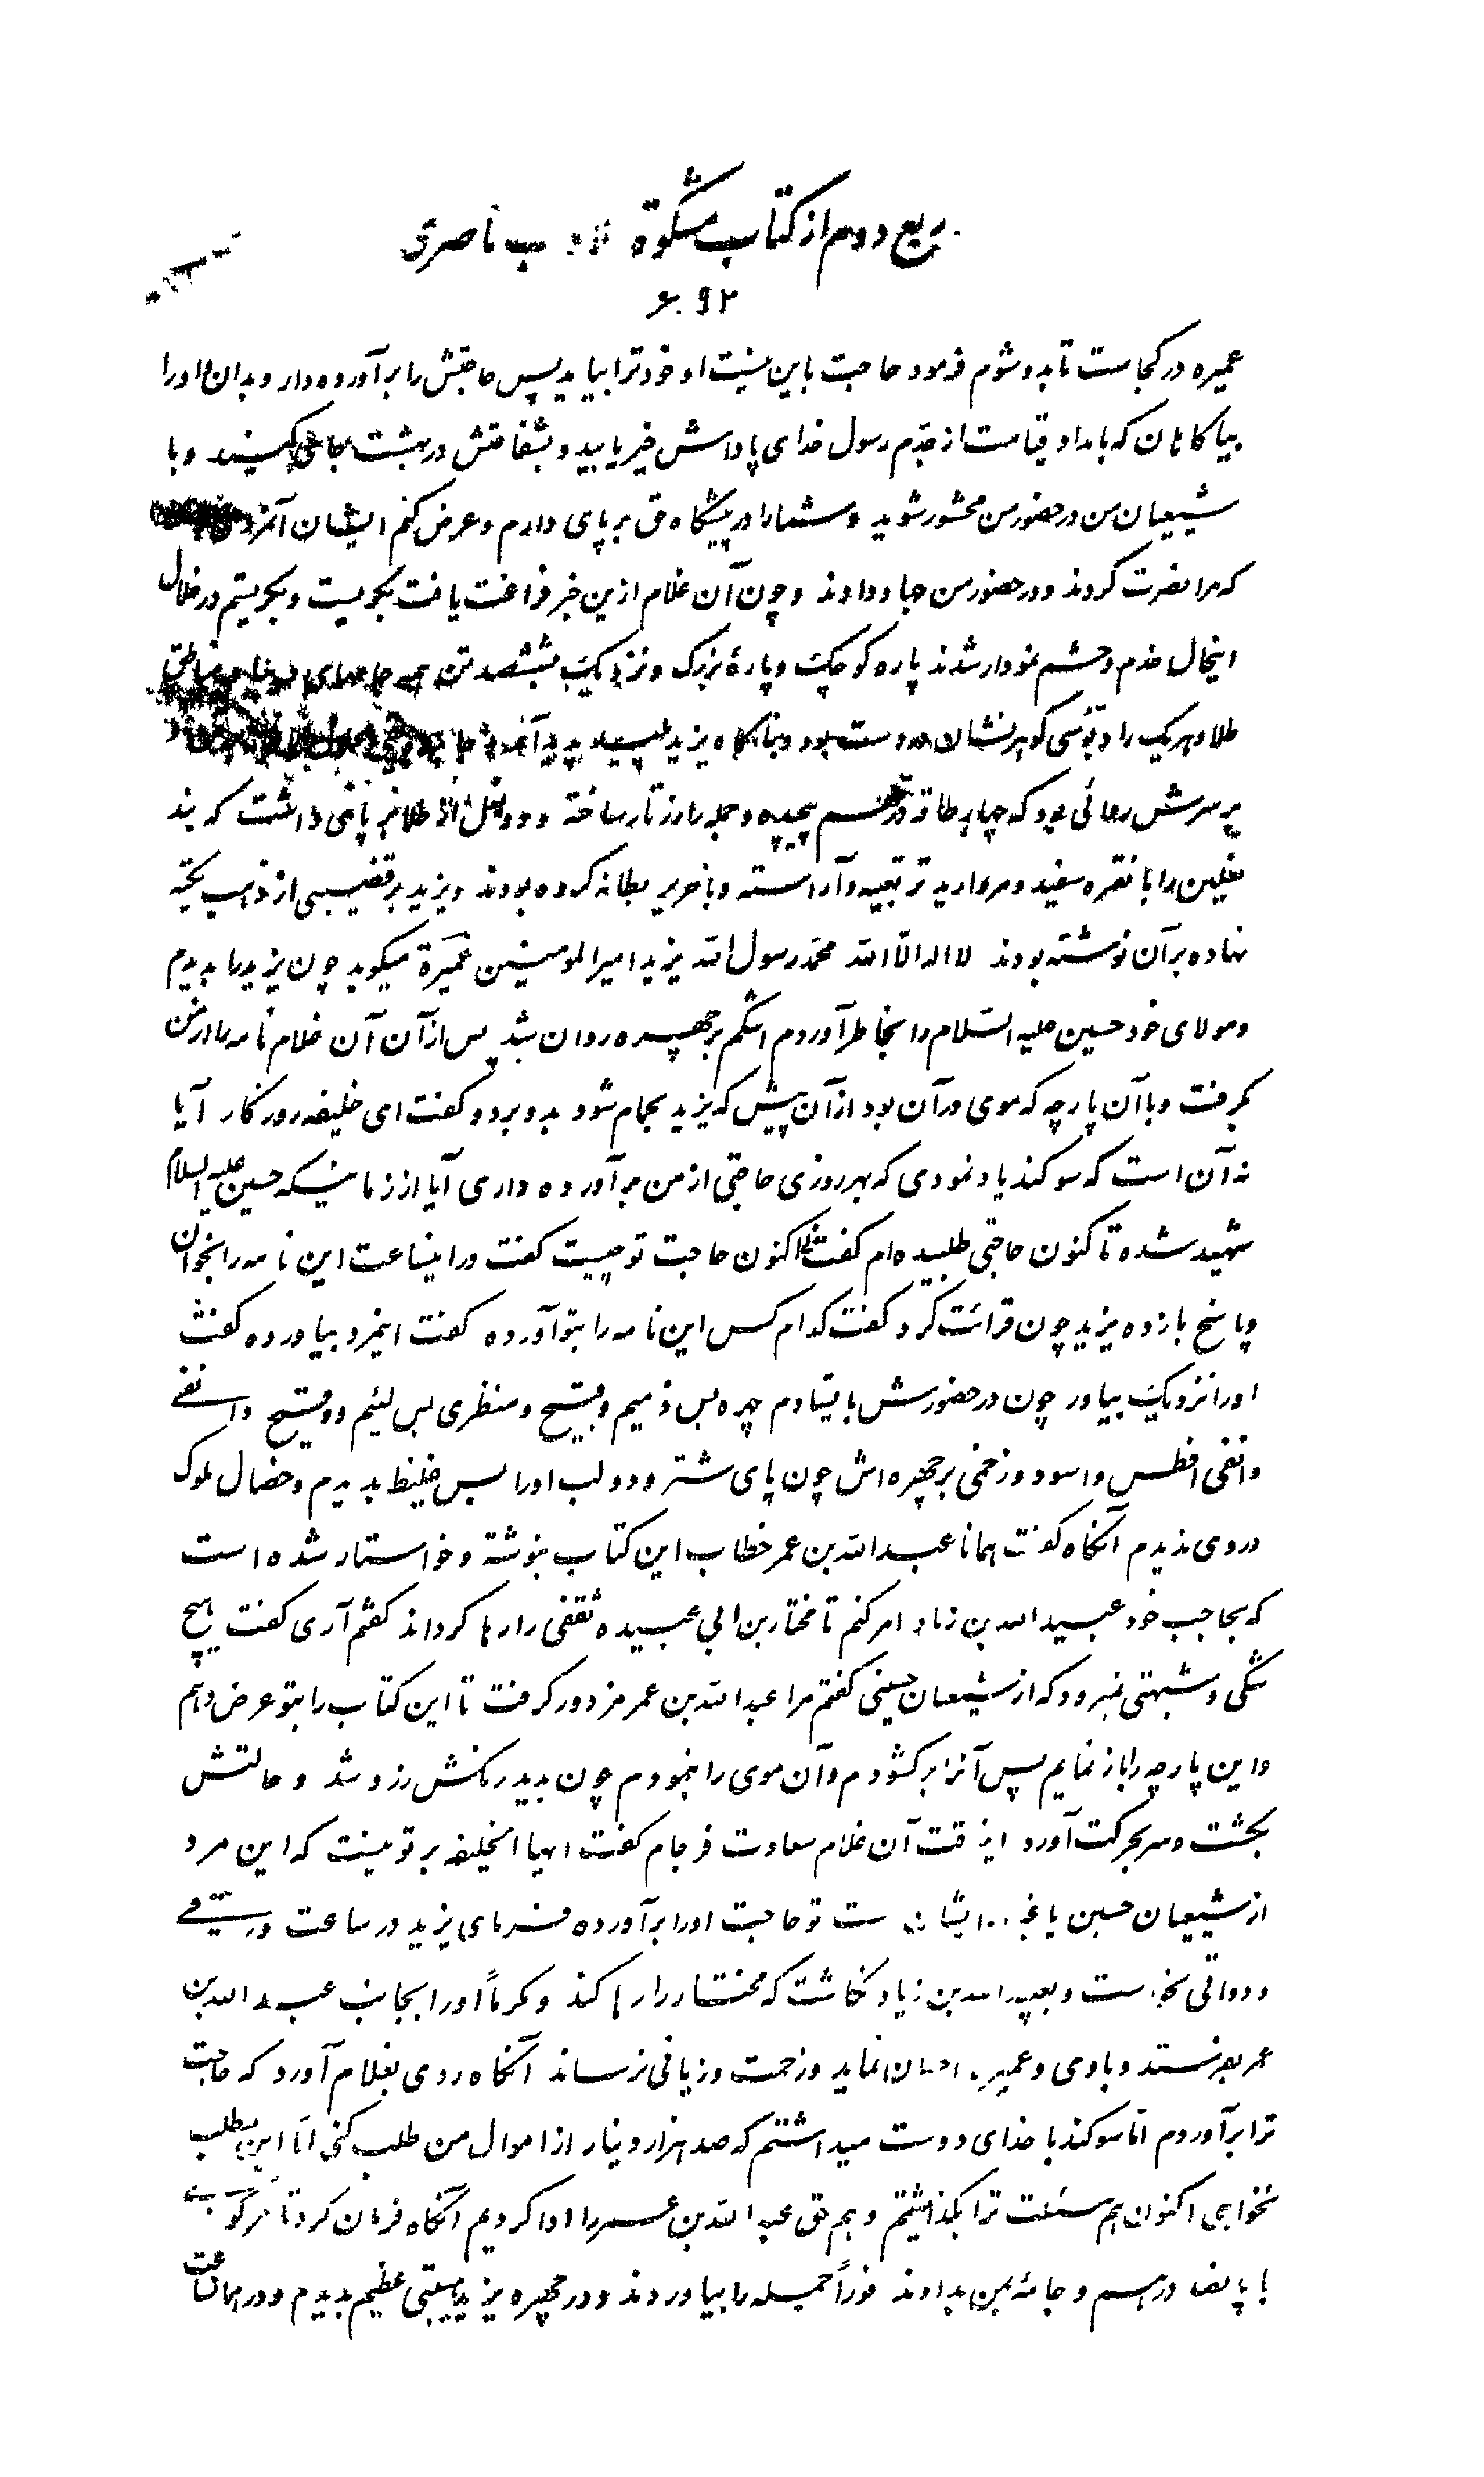 ربع دوم از کتاب مشکوة الادب ناصری
۶۰۹۲
عمیره در کجاست تا بدو شوم فرمود حاجت باین نیست او خود ترا بیابد پس حاجتش را برآورده دار و بدان او را
بیاگاهان که بامداد قیامت از جدم رسول خدای پاداش خیر یابید و بشفاعتش در بهشت جای کنید و با
شیعیان من در حضور من محشور شوید و شما را در پیشگاه حق برپای دارم و عرض کنم ایشان
که مرا نصرت کردند و در حضور من جهاد دادند و چون آن غلام ازین خبر فراغت یافت بگریست و بگریستم در خلال
اینحال خدم و حشم نمودار شدند پاره کوچک و پارۀ بزرگ و نزدیک بششصد تن جامهای
طلا و هریک را دبوسی گوهرنشان در دست بود و بناگاه یزید پلید پدید آمد
بر سرش ردائی بود که چهار طاقه درهم پیچیده و جمله را زرتار ساخته و دو نعل از طلا در پای داشت که بند
نعلین را با نقره سفید و مروارید تر تعبیه و آراسته و با حریر بطانه کرده بودند و یزید بر قضیبی از ذهب تکیه
نهاده بر آن نوشته بودند لا اله الّا الله محمّد رسول الله یزید امیرالمؤمنین عمیرة میگوید چون یزید را بدیدم
و مولای خود حسین علیه السّلام را بخاطر آوردم اشکم بر چهره روان شد پس از آن آن غلام نامه را از من
بگرفت و با آن پارچه که موی در آن بود از آن پیش که یزید بحمام شود بدو برد و گفت ای خلیفه روزگار آیا
نه آن است که سوگند یاد نمودی که بهر روزی حاجتی از من برآورده داری آیا از زمانیکه حسین علیه السلام
شهید شده تاکنون حاجتی طلبیده‌ام گفت اکنون حاجت تو چیست گفت در اینساعت این نامه را بخوان
و پاسخ بازده یزید چون قرائت کرد گفت کدام کس این نامه را بتو آورده گفت اینمرد بیاورده گفت
او را نزدیک بیاور چون در حضورش بایستادم چهره بس ذمیم و قبیح و منظری بس لئیم و وقیح و انفی
و انفی افطس و اسود و زخمی بر چهره‌اش چون پای شتر و دو لب او را بس غلیظ بدیدم و خصال ملوک
در وی ندیدم آنگاه گفت همانا عبدالله بن عمر خطاب این کتاب بنوشته و خواستار شده است
که بحاجب خود عبیدالله بن زیاد امر کنم تا مختار بن ابی عبیده ثقفی را رها گرداند گفتم آری گفت هیچ
شکی و شبهتی نمیرود که از شیعیان حسینی گفتم مرا عبدالله بن عمر مزدور گرفت تا این کتاب را بتو عرض دهم
و این پارچه را باز نمایم پس آنرا برگشودم و آن موی را بنمودم چون بدید رنگش زرد شد و حالتش
بگشت و سر بحرکت آورد اینوقت آن غلام سعادت فرجام گفت ایها الخلیفه بر تو نیست که این مرد
از شیعیان حسین یا غیر ایشان است تو حاجت او را برآورده فرمای یزید در ساعت ورقی
و دواتی بخواست و بعبیدالله بن زیاد نگاشت که مختار را رها کند و مکرماً او را بجانب عبدالله بن
عمر بفرستد و با وی و عمیره احسان نماید و زحمت و زیانی نرساند آنگاه روی بغلام آورد که حاجت
ترا برآوردم اما سوگند با خدای دوست میداشتم که صد هزار دینار از اموال من طلب کنی اما این مطلب
نخواهی اکنون هم مسئلت ترا بگذاشتم و هم حق عبدالله بن عمر را ادا کردیم آنگاه فرمان کرد تا مرکوبی
با پانصد درهم و جامۀ بمن بدادند فوراً جمله را بیاوردند و در چهره یزید هیبتی عظیم بدیدم و در همانساعت